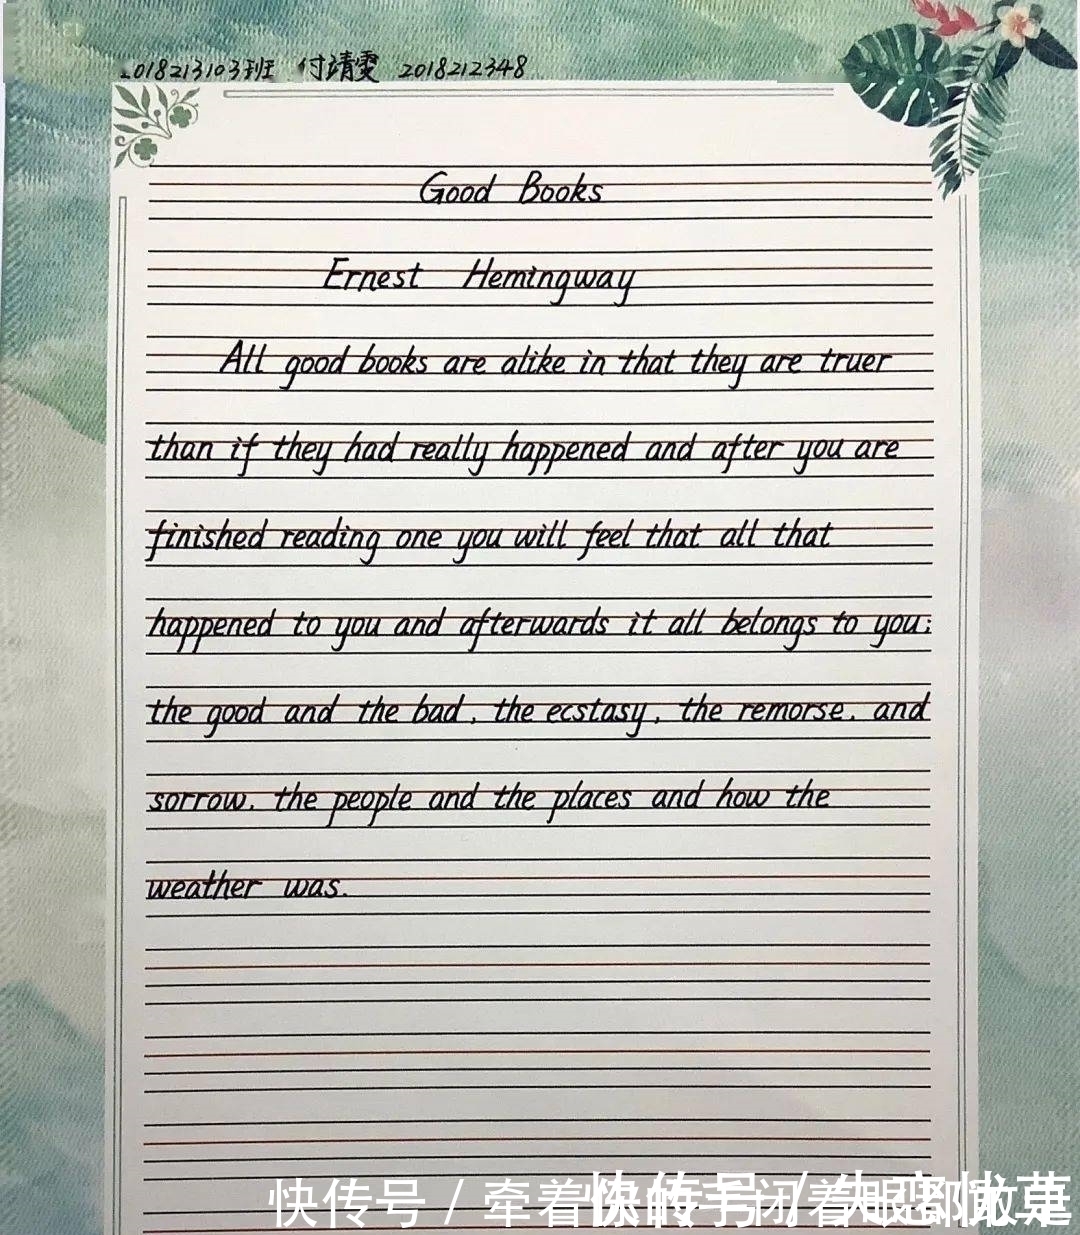 2018213103班 付靖雯 2018212348
Good Books
Ernest Hemingway
All good books are alike in that they are truer
than if they had really happened and after you are
finished reading one you will feel that all that
happened to you and afterwards it all belongs to you;
the good and the bad, the ecstasy, the remorse. and
sorrow. the people and the places and how the
weather was.
快传号 / 牵着你的手闭着眼都敢走
快传号 / 失恋忧草